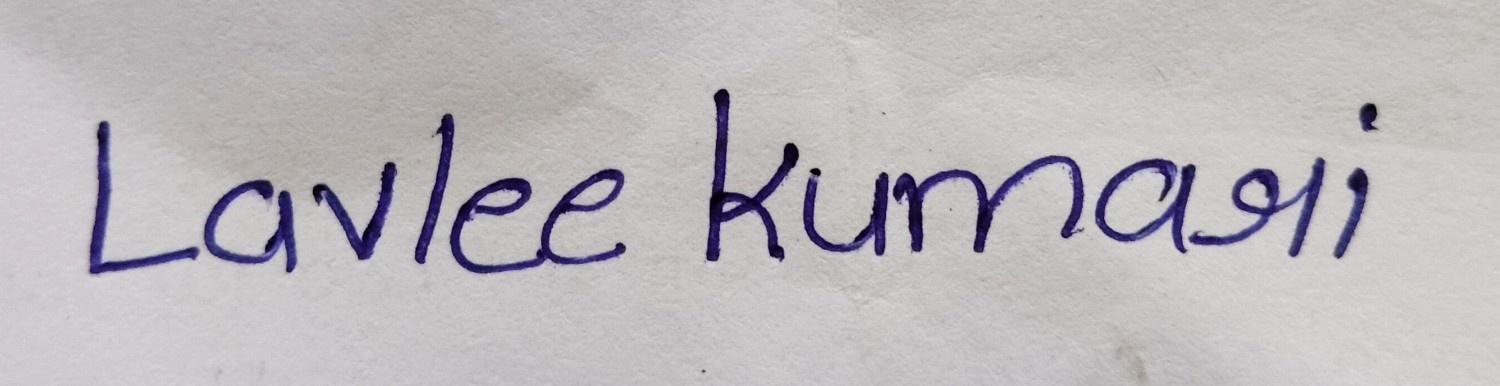 Lavlee Kumari